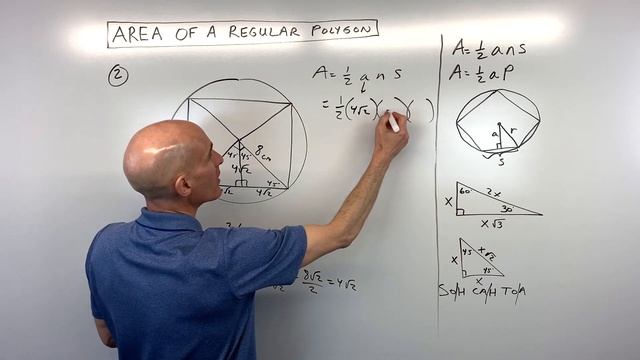 AREA OF A REGULAR POLYGON
②
A = 1/2 a n s
= 1/2 (4√2)( )( )
8 cm
45 45
4√2
45
√2 4√2
8√2/2 = 4√2
A = 1/2 a n s
A = 1/2 a P
a r
s
60°
2x
x
30°
x√3
45
x√2
x
45
x
SO/H CA/H TO/A